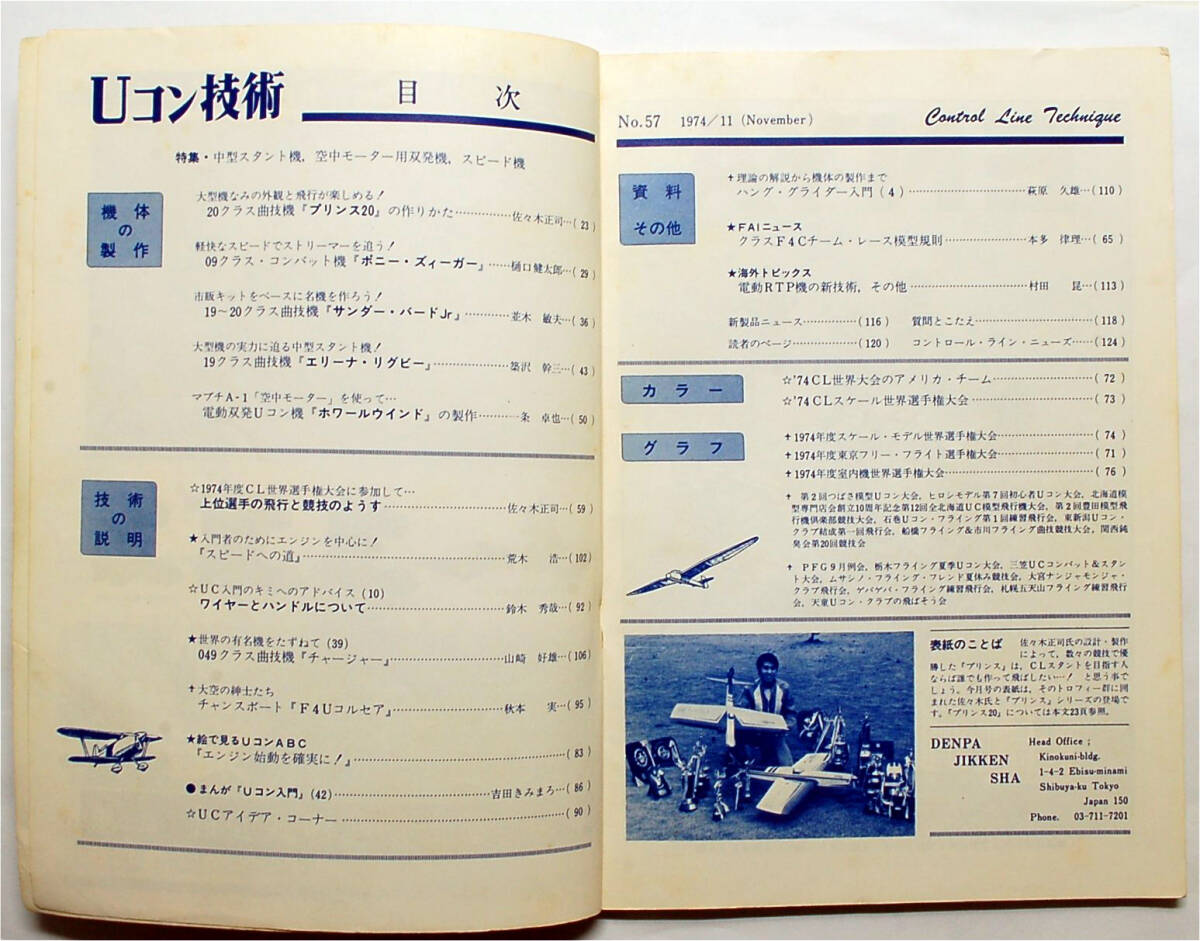 Uコン技術
目次
特集・中型スタント機，空中モーター用双発機，スピード機
機体
の
製作
大型機なみの外観と飛行が楽しめる！
20クラス曲技機『プリンス20』の作りかた…………佐々木正司…(23)
軽快なスピードでストリーマーを追う！
09クラス・コンバット機『ボニー・ズィーガー』……樋口健太郎…(29)
市販キットをベースに名機を作ろう！
19～20クラス曲技機『サンダー・バードJr』…………並木 敏夫…(36)
大型機の実力に迫る中型スタント機！
19クラス曲技機『エリーナ・リグビー』…………築沢 幹三…(43)
マブチA-1「空中モーター」を使って…
電動双発Uコン機『ホワールウインド』の製作………一条 卓也…(50)
技術
の
説明
☆1974年度CL世界選手権大会に参加して…
上位選手の飛行と競技のようす…………佐々木正司…(59)
★入門者のためにエンジンを中心に！
『スピードへの道』…………荒木 浩…(102)
☆UC入門のキミへのアドバイス(10)
ワイヤーとハンドルについて…………鈴木 秀哉…(92)
★世界の有名機をたずねて(39)
049クラス曲技機『チャージャー』…………山崎 好雄…(106)
✝大空の紳士たち
チャンスボート『F4Uコルセア』…………秋本 実…(95)
★絵で見るUコンABC
『エンジン始動を確実に！』…………(83)
●まんが『Uコン入門』(42)…………吉田きみまろ…(86)
☆UCアイデア・コーナー…………(90)
No.57 1974／11 (November)
Control Line Technique
資料
その他
✝理論の解説から機体の製作まで
ハング・グライダー入門(4)…………萩原 久雄…(110)
★FAIニュース
クラスF4Cチーム・レース模型規則…………本多 律理…(65)
★海外トピックス
電動RTP機の新技術，その他…………村田 昆…(113)
新製品ニュース…………(116) 質問とこたえ…………(118)
読者のページ…………(120) コントロール・ライン・ニューズ……(124)
カラー
☆'74CL世界大会のアメリカ・チーム…………(72)
☆'74CLスケール世界選手権大会…………(73)
グラフ
✝1974年度スケール・モデル世界選手権大会…………(74)
✝1974年度東京フリー・フライト選手権大会…………(71)
✝1974年度室内機世界選手権大会…………(76)
✝ 第2回つばさ模型Uコン大会，ヒロシモデル第7回初心者Uコン大会，北海道模
型専門店会創立10周年記念第12回全北海道UC模型飛行機大会，第2回豊田模型飛
行機倶楽部競技大会，石巻Uコン・フライング第1回練習飛行会，東新潟Uコン・
クラブ結成第一回飛行会，船橋フライング＆市川フライング曲技競技大会，関西純
臭会第20回競技会
✝ PFG9月例会，栃木フライング夏季Uコン大会，三笠UCコンバット＆スタン
ト大会，ムサシノ・フライング・フレンド夏休み競技会，大宮ナンジャモンジャ・
クラブ飛行会，ゲバゲバ・フライング練習飛行会，札幌五天山フライング練習飛行
会，天童Uコン・クラブの飛ばそう会
表紙のことば 佐々木正司氏の設計・製作
によって，数々の競技で優
勝した『プリンス』は，CLスタントを目指す人
ならば誰でも作って飛ばしたい…！ と思う事で
しょう。今月号の表紙は，そのトロフィー群に囲
まれた佐々木氏と『プリンス』シリーズの登場で
す。『プリンス20』については本文23頁参照。
DENPA
JIKKEN
SHA
Head Office ;
Kinokuni-bldg.
1-4-2 Ebisu-minami
Shibuya-ku Tokyo
Japan 150
Phone. 03-711-7201